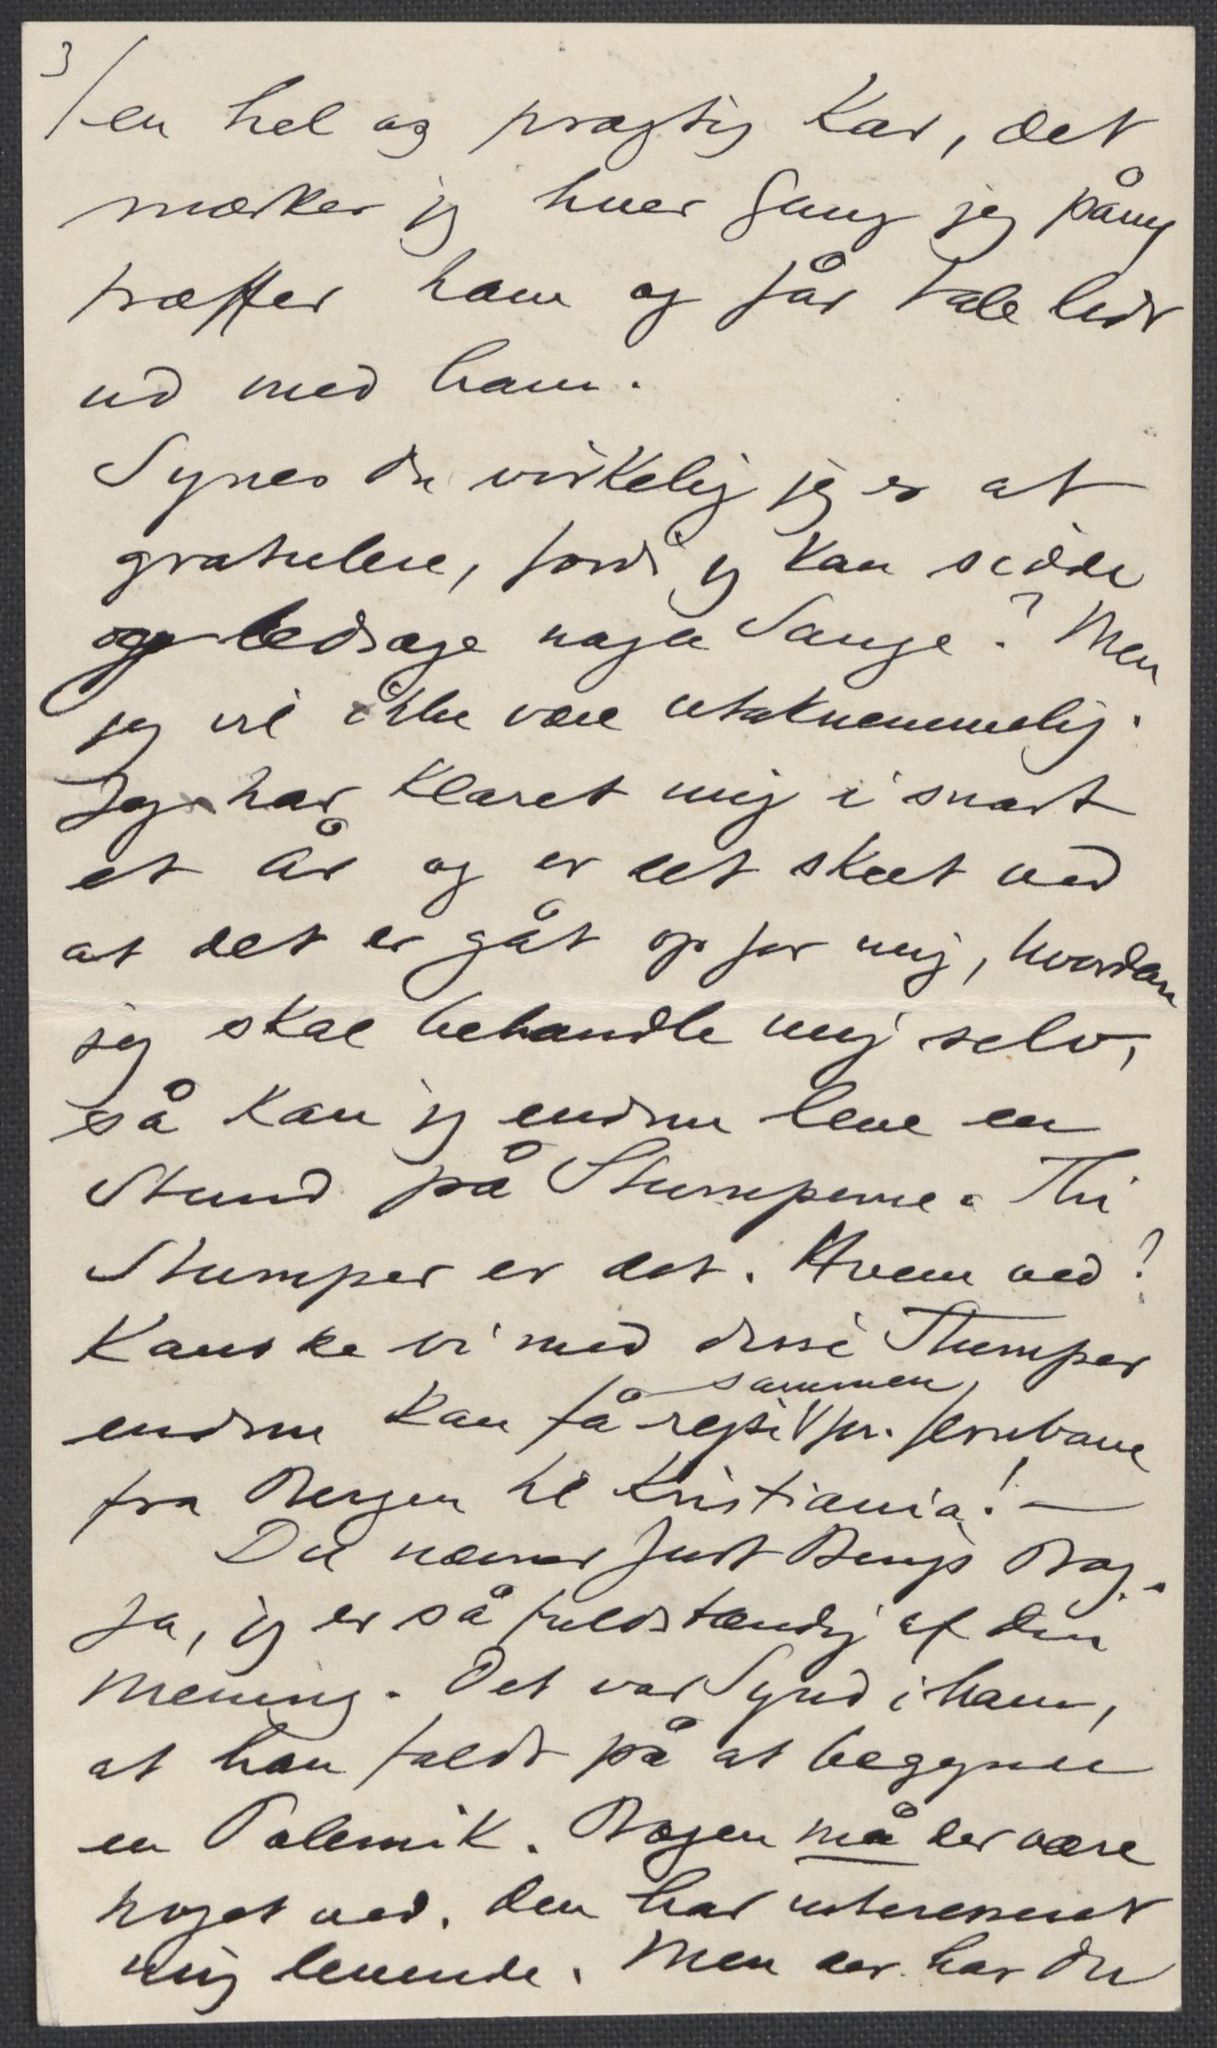 3/
en hel og prægtig Kar, det
mærker jeg hver Gang jeg påny
træffer ham og får tale lidt
ud med ham.
Synes du virkelig jeg er at
gratulere, fordi jeg kan sidde
og ledsage nogle Sange? Men
jeg vil ikke være utaknemmelig.
Jeg har klaret mig i snart
et År og er det skeet ved
at det er gåt op for mig, hvordan
jeg skal behandle mig selv,
så kan jeg endnu leve en
Stund på Stumperne. Thi
Stumper er det. Hvem ved?
Kanske vi med disse Stumper
sammen
endnu kan få rejse pr. Jernbane
fra Bergen til Kristiania! —
Du nævner Just Bings Bog.
Ja, jeg er så fuldstændig af din
Mening. Det var Synd i ham,
at han faldt på at begynde
en Polemik. Bogen må der være
noget ved. Den har interesseret
mig levende. Men der har du